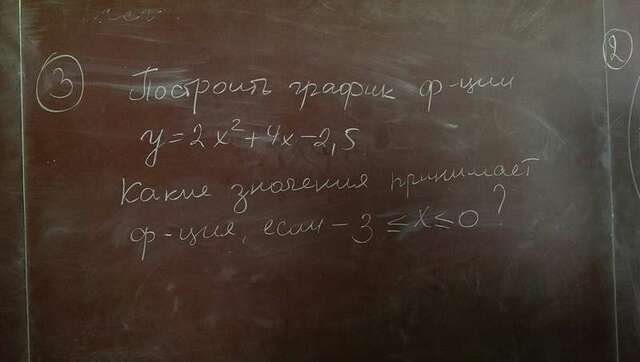 3
Построить график ф-ции
y=2x²+4x-2,5
Какие значения принимает
ф-ция, если -3 ≤ x ≤ 0 ?
2